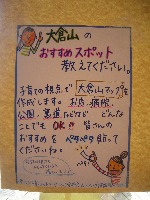 大倉山の
おすすめスポット
教えてください。
子育て視点で大倉山マップを
作成します。お店・病院、
公園、裏道などなど どんな
ことでもOK!! 皆さんの
おすすめをペタペタ貼って
くださいね。